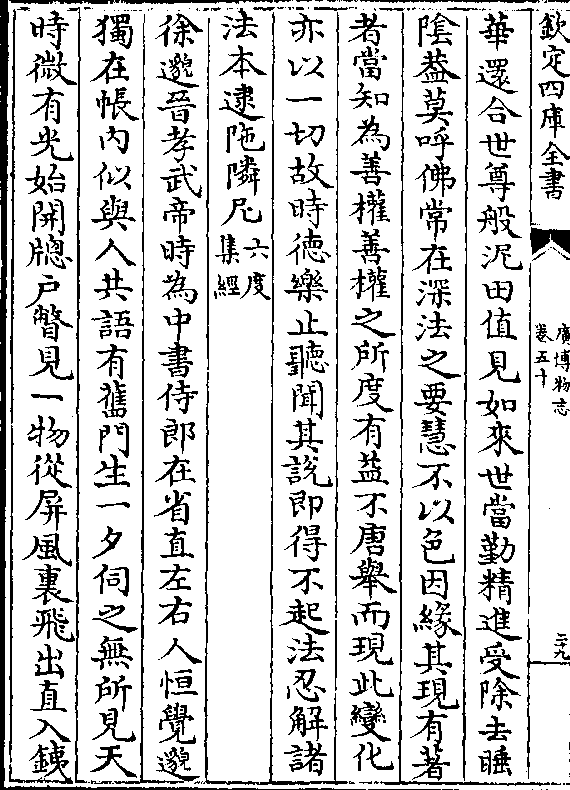 欽定四庫全書
廣博物志
卷五十
二九
華還合世尊般泥田值見如來世當勤精進受除去睡
陰葢莫呼佛常在深法之要慧不以色因緣其現有著
者當知為善權善權之所度有益不唐舉而現此變化
亦以一切故時德樂止聽聞其説即得不起法忍解諸
法本逮陁隣尼六度集經
徐邈晉孝武帝時為中書侍郎在省直左右人恒覺邈
獨在帳內似與人共語有舊門生一夕伺之無所見天
時微有光始開牕戶瞥見一物從屏風裏飛出直入銕